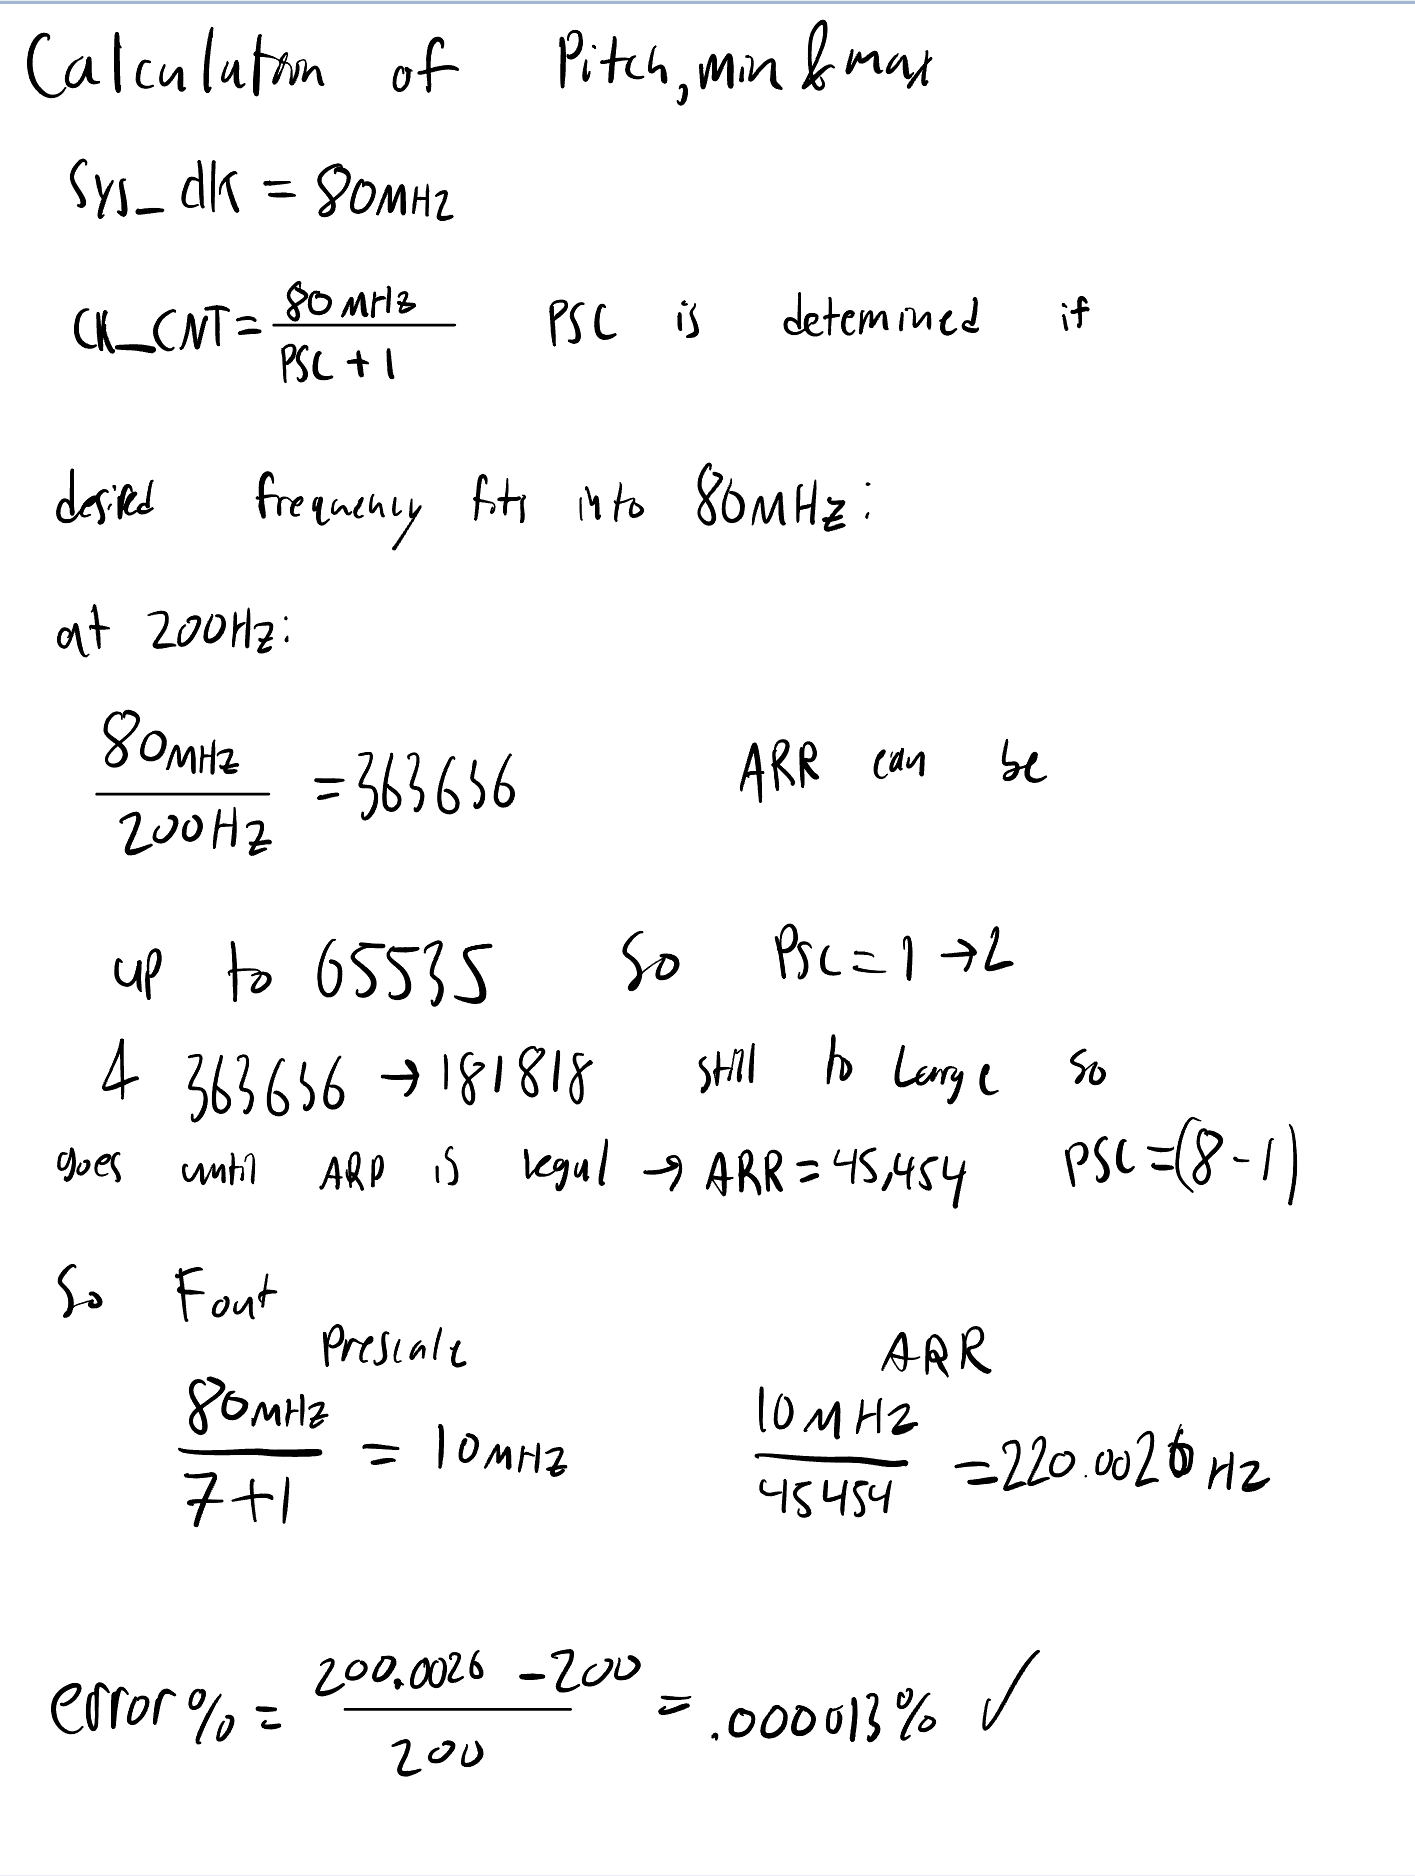 Calculation of Pitch, min & max
Sys_clk = 80MHz
CK_CNT = 80 MHz / PSC + 1 PSC is detemined if
desired frequency fits into 80MHz:
at 200Hz:
80MHz / 200Hz = 363636 ARR can be
up to 65535 So PSC = 1 → 2
& 363636 → 181818 still to Large so
goes until ARR is legal → ARR = 45,454 PSC = (8-1)
So Fout
Prescale ARR
80MHz / 7+1 = 10MHz 10MHz / 45454 = 220.0026 Hz
error % = 200.0026 - 200 / 200 = .000013% ✓